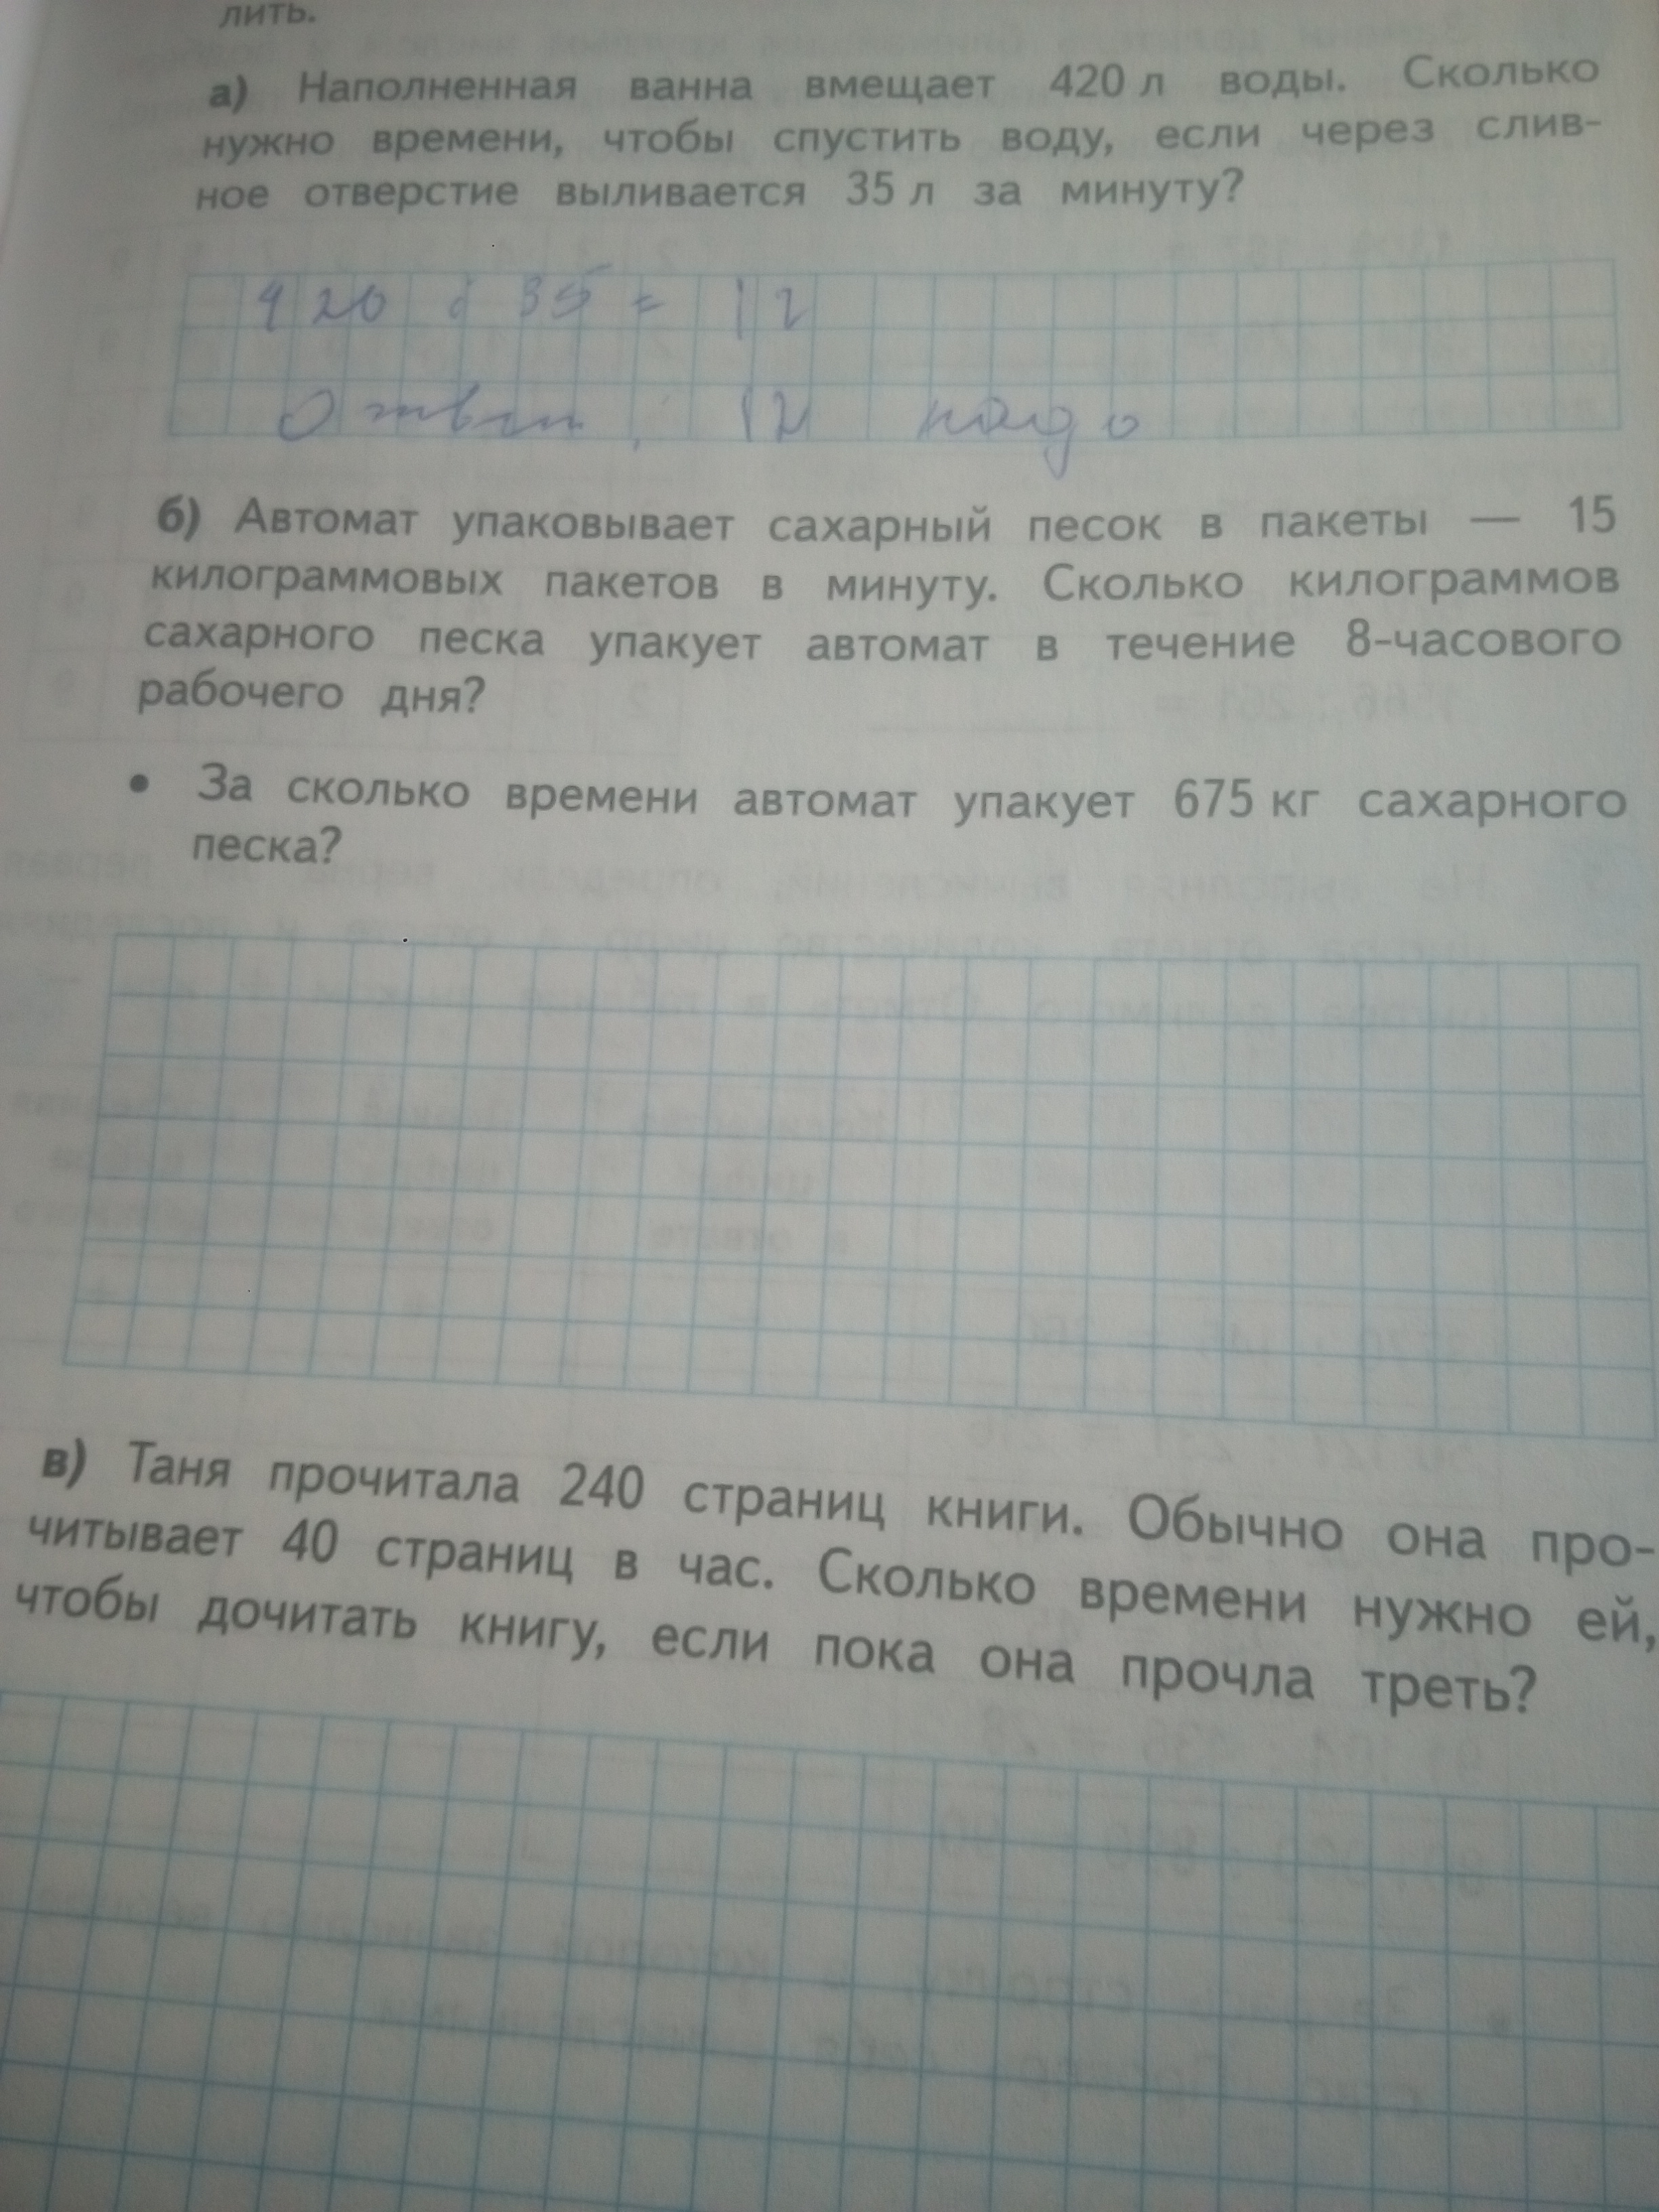 лить.
а) Наполненная ванна вмещает 420 л воды. Сколько
нужно времени, чтобы спустить воду, если через слив-
ное отверстие выливается 35 л за минуту?
420 : 35 = 12
Ответ, 12 надо
б) Автомат упаковывает сахарный песок в пакеты — 15
килограммовых пакетов в минуту. Сколько килограммов
сахарного песка упакует автомат в течение 8-часового
рабочего дня?
• За сколько времени автомат упакует 675 кг сахарного
песка?
в) Таня прочитала 240 страниц книги. Обычно она про-
читывает 40 страниц в час. Сколько времени нужно ей,
чтобы дочитать книгу, если пока она прочла треть?